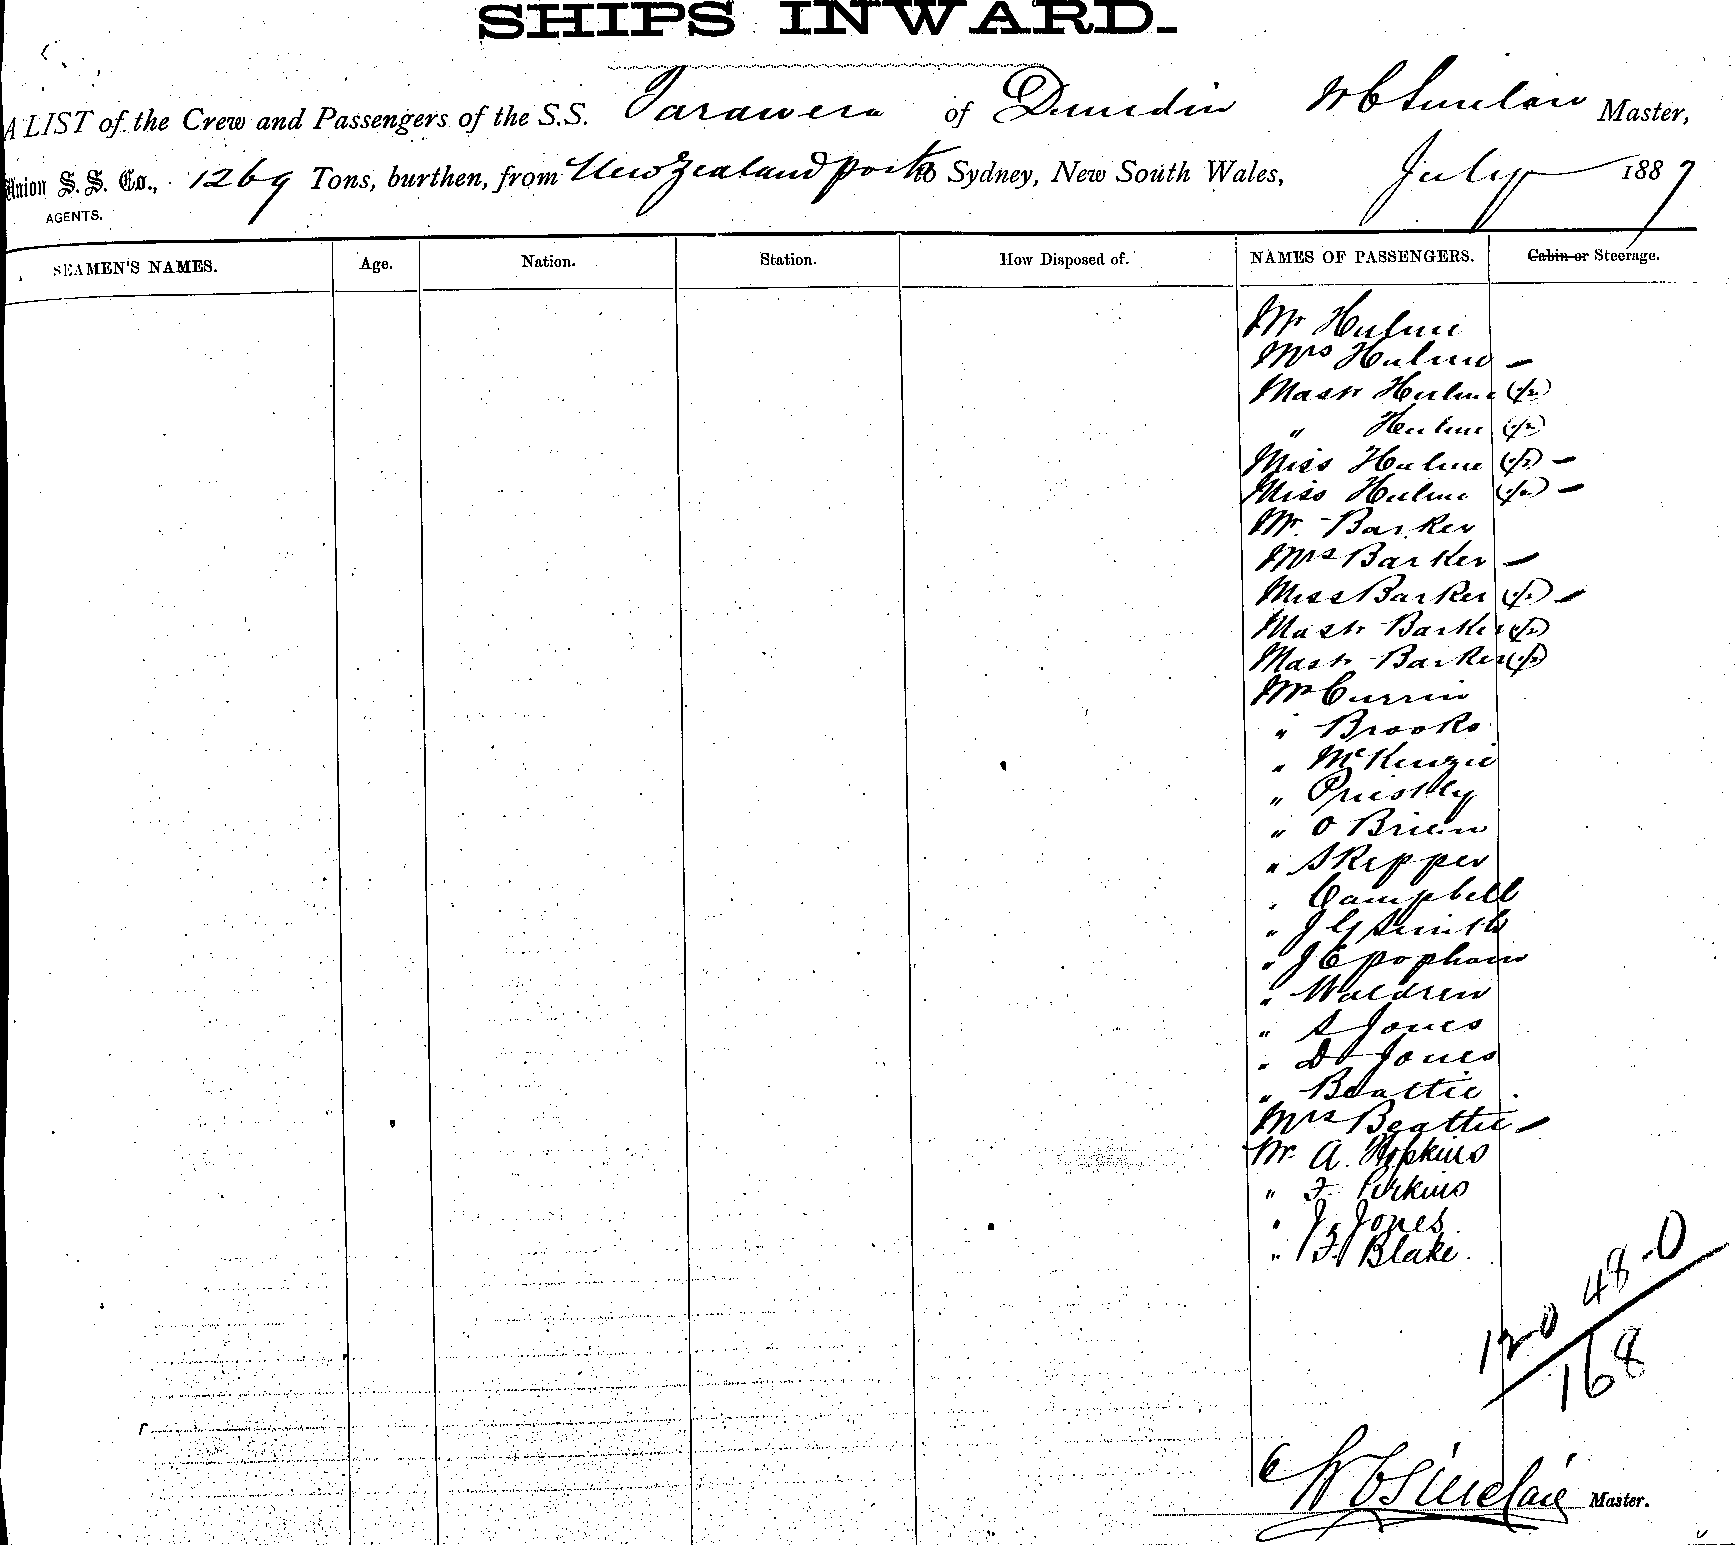 SHIPS INWARD.
A LIST of the Crew and Passengers of the S.S. Tarawera of Dunedin W C Sinclair Master,
Union S. S. Co., 1269 Tons, burthen, from New Zealand ports to Sydney, New South Wales, July 1887
AGENTS.
SEAMEN'S NAMES. Age. Nation. Station. How Disposed of. NAMES OF PASSENGERS. Cabin or Steerage.
Mr Hulme
Mrs Hulme –
Mastr Hulme (1/2)
" Hulme (1/2)
Miss Hulme (1/2) –
Miss Hulme (1/2) –
Mr. Barker
Mrs Barker –
Miss Barker (1/2) –
Mastr Barker (1/2)
Mastr Barker (1/2)
Mr Currin
" Brooks
" McKenzie
" Priestly
" O Brien
" Skipper
" Campbell
" J G Smith
" J E Popham
" Waldren
" S Jones
" D Jones
" Beattie
Mrs Beattie –
Mr A. Hopkins
" F. Perkins
" J. Jones
" F. Blake.
48-0
120
168
W C Sinclair Master.